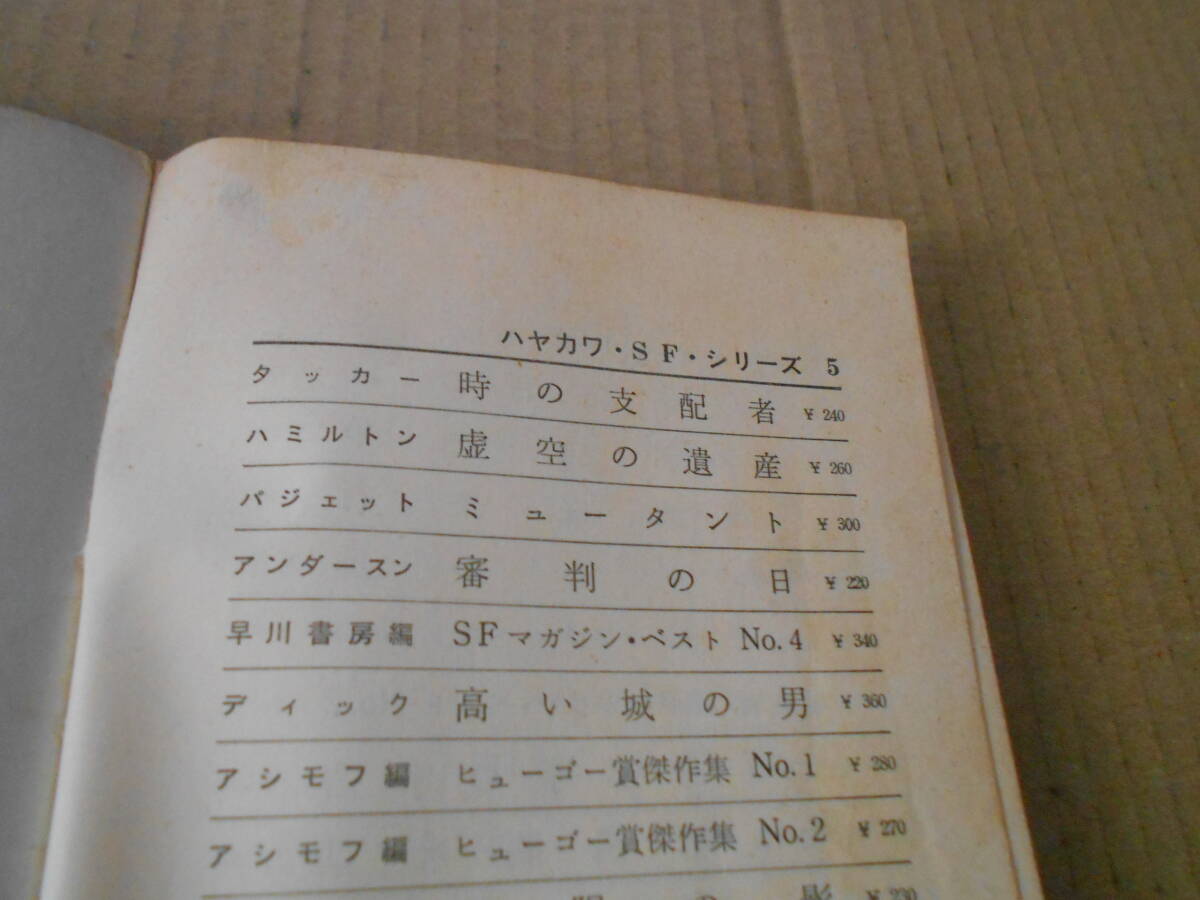 ハヤカワ・SF・シリーズ 5
タッカー 時の支配者 ¥240
ハミルトン 虚空の遺産 ¥260
パジェット ミュータント ¥300
アンダースン 審判の日 ¥220
早川書房編 SFマガジン・ベスト No.4 ¥340
ディック 高い城の男 ¥360
アシモフ編 ヒューゴー賞傑作集 No.1 ¥280
アシモフ編 ヒューゴー賞傑作集 No.2 ¥270
の影 ¥230